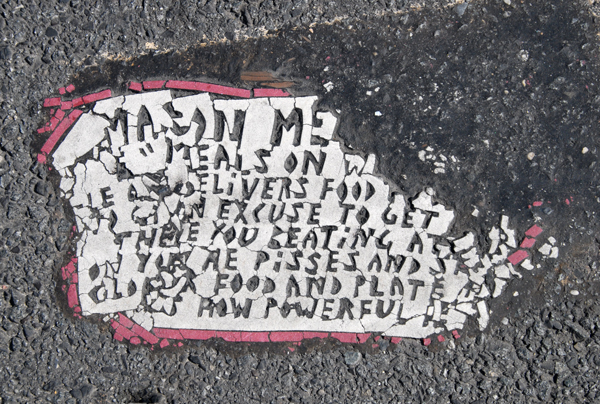 MASON ME
MEALS ON W
DELIVERS FOOD
N EXCUSE TO GET
THERE YOU EATING AS
HE PISSES AND S
FOOD AND PLATE
HOW POWERFUL